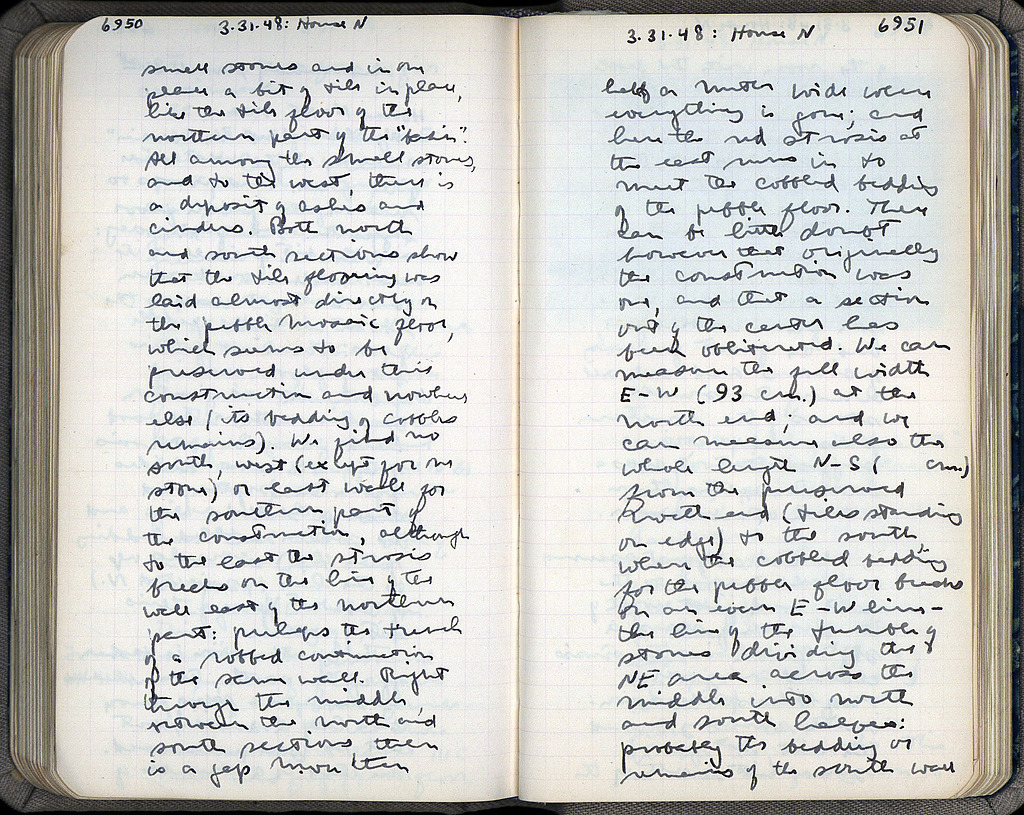 6950
3-31-48: House N
small stones and in one
place a bit of tile in place,
like the tile floor of the
northern part of the "basin".
All among the small stones,
and to the west, there is
a deposit of ashes and
cinders. Both north
and south sections show
that the tile flooring was
laid almost directly on
the pebble mosaic floor,
which seems to be
preserved under this
construction and nowhere
else (its bedding of cobbles
remains). We find no
south, west (except for one
stone) or east walls for
the southern part of
the construction, although
to the east the strosis
breaks on the line of the
wall east of the northern
part: perhaps the trench
of a robbed continuation
of the same wall. Right
through the middle
between the north and
south sections there
is a gap more than
3-31-48: House N
6951
half a meter wide where
everything is gone; and
here the red strosis at
the east runs in to
meet the cobbled bedding
of the pebble floor. There
can be little doubt
however that originally
the construction was
one, and that a section
out of the center has
been obliterated. We can
measure the full width
E-W (93 cm.) at the
north end; and we
can measure also the
whole length N-S ( cm.)
from the preserved
north end (tiles standing
on edge) to the south,
where the cobbled bedding
for the pebble floor breaks
on an even E-W line-
the line of the tumble of
stones dividing the
NE area across the
middle into north
and south halves:
probably the bedding or
remains of the south wall